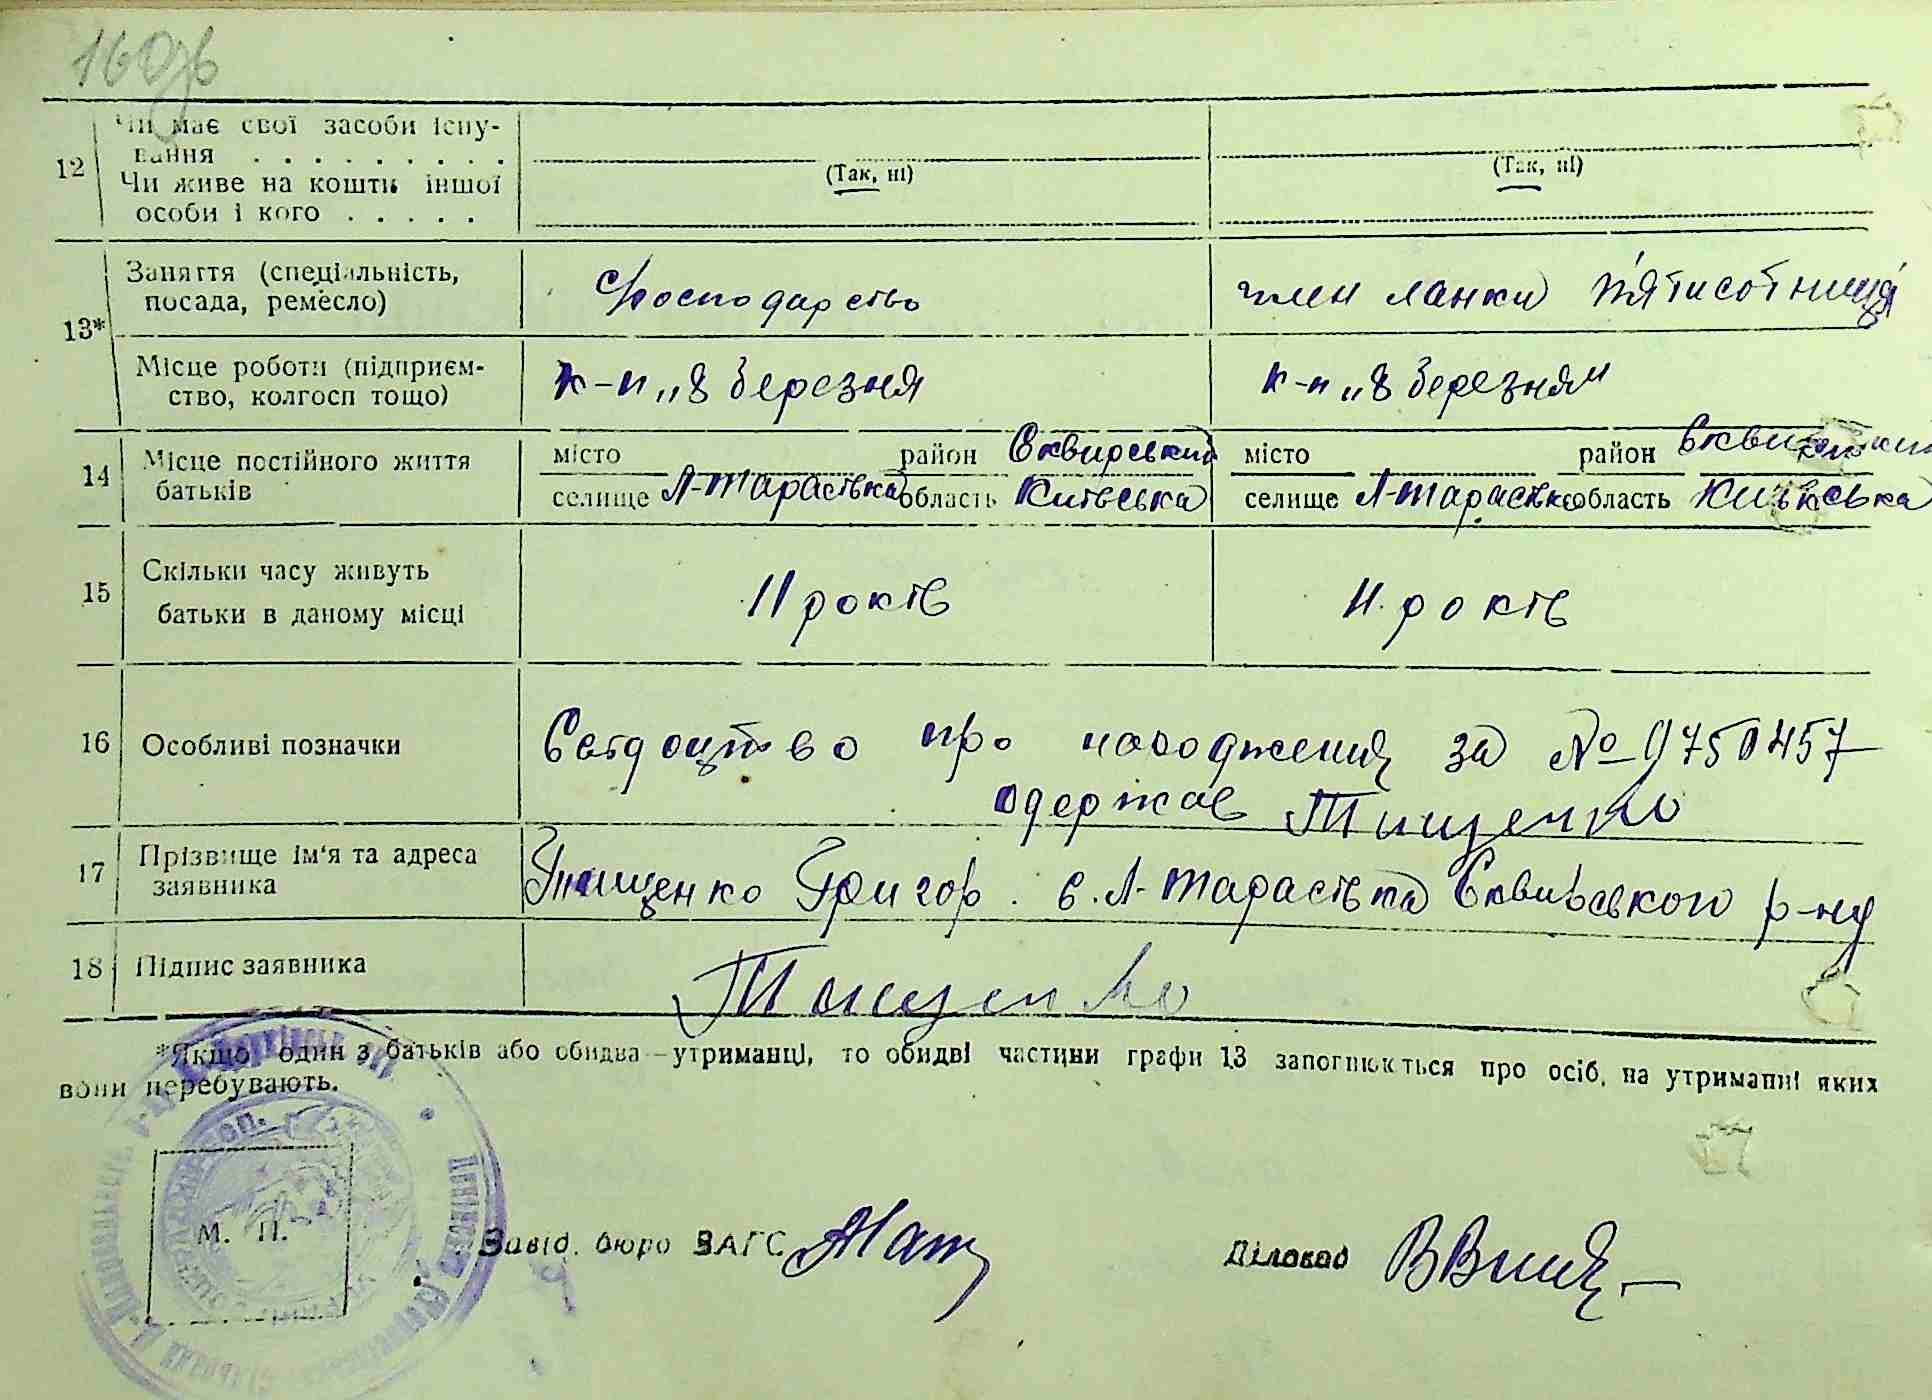 160зв
12 Чи має свої засоби існу-
вання . . . . . . . . .
(Так, ні) (Так, ні)
Чи живе на кошти іншої
особи і кого . . . . .
13* Заняття (спеціальність,
посада, ремесло)
господарство член ланки п'ятисотниці
Місце роботи (підприєм-
ство, колгосп тощо)
к-п „8 березня к-п „8 березня"
14 Місце постійного життя
батьків
місто район Сквирський місто район
селище Л-Тарасівка область Київська селище Л-Тарасівка область Київська
15 Скільки часу живуть
батьки в даному місці
11 років 11 років
16 Особливі позначки
Свідоцтво про народження за № 9750457
одержав Тищенко
17 Прізвище ім'я та адреса
заявника
Тищенко Григор. с. Л-Тарасівка Сквирського р-ну
18 Підпис заявника
Тищенко
*Якщо один з батьків або обидва—утриманці, то обидві частини графи 13 заповнюється про осіб, на утриманні яких
вони перебувають.
М. П.
Завід. бюро ЗАГС
Діловод